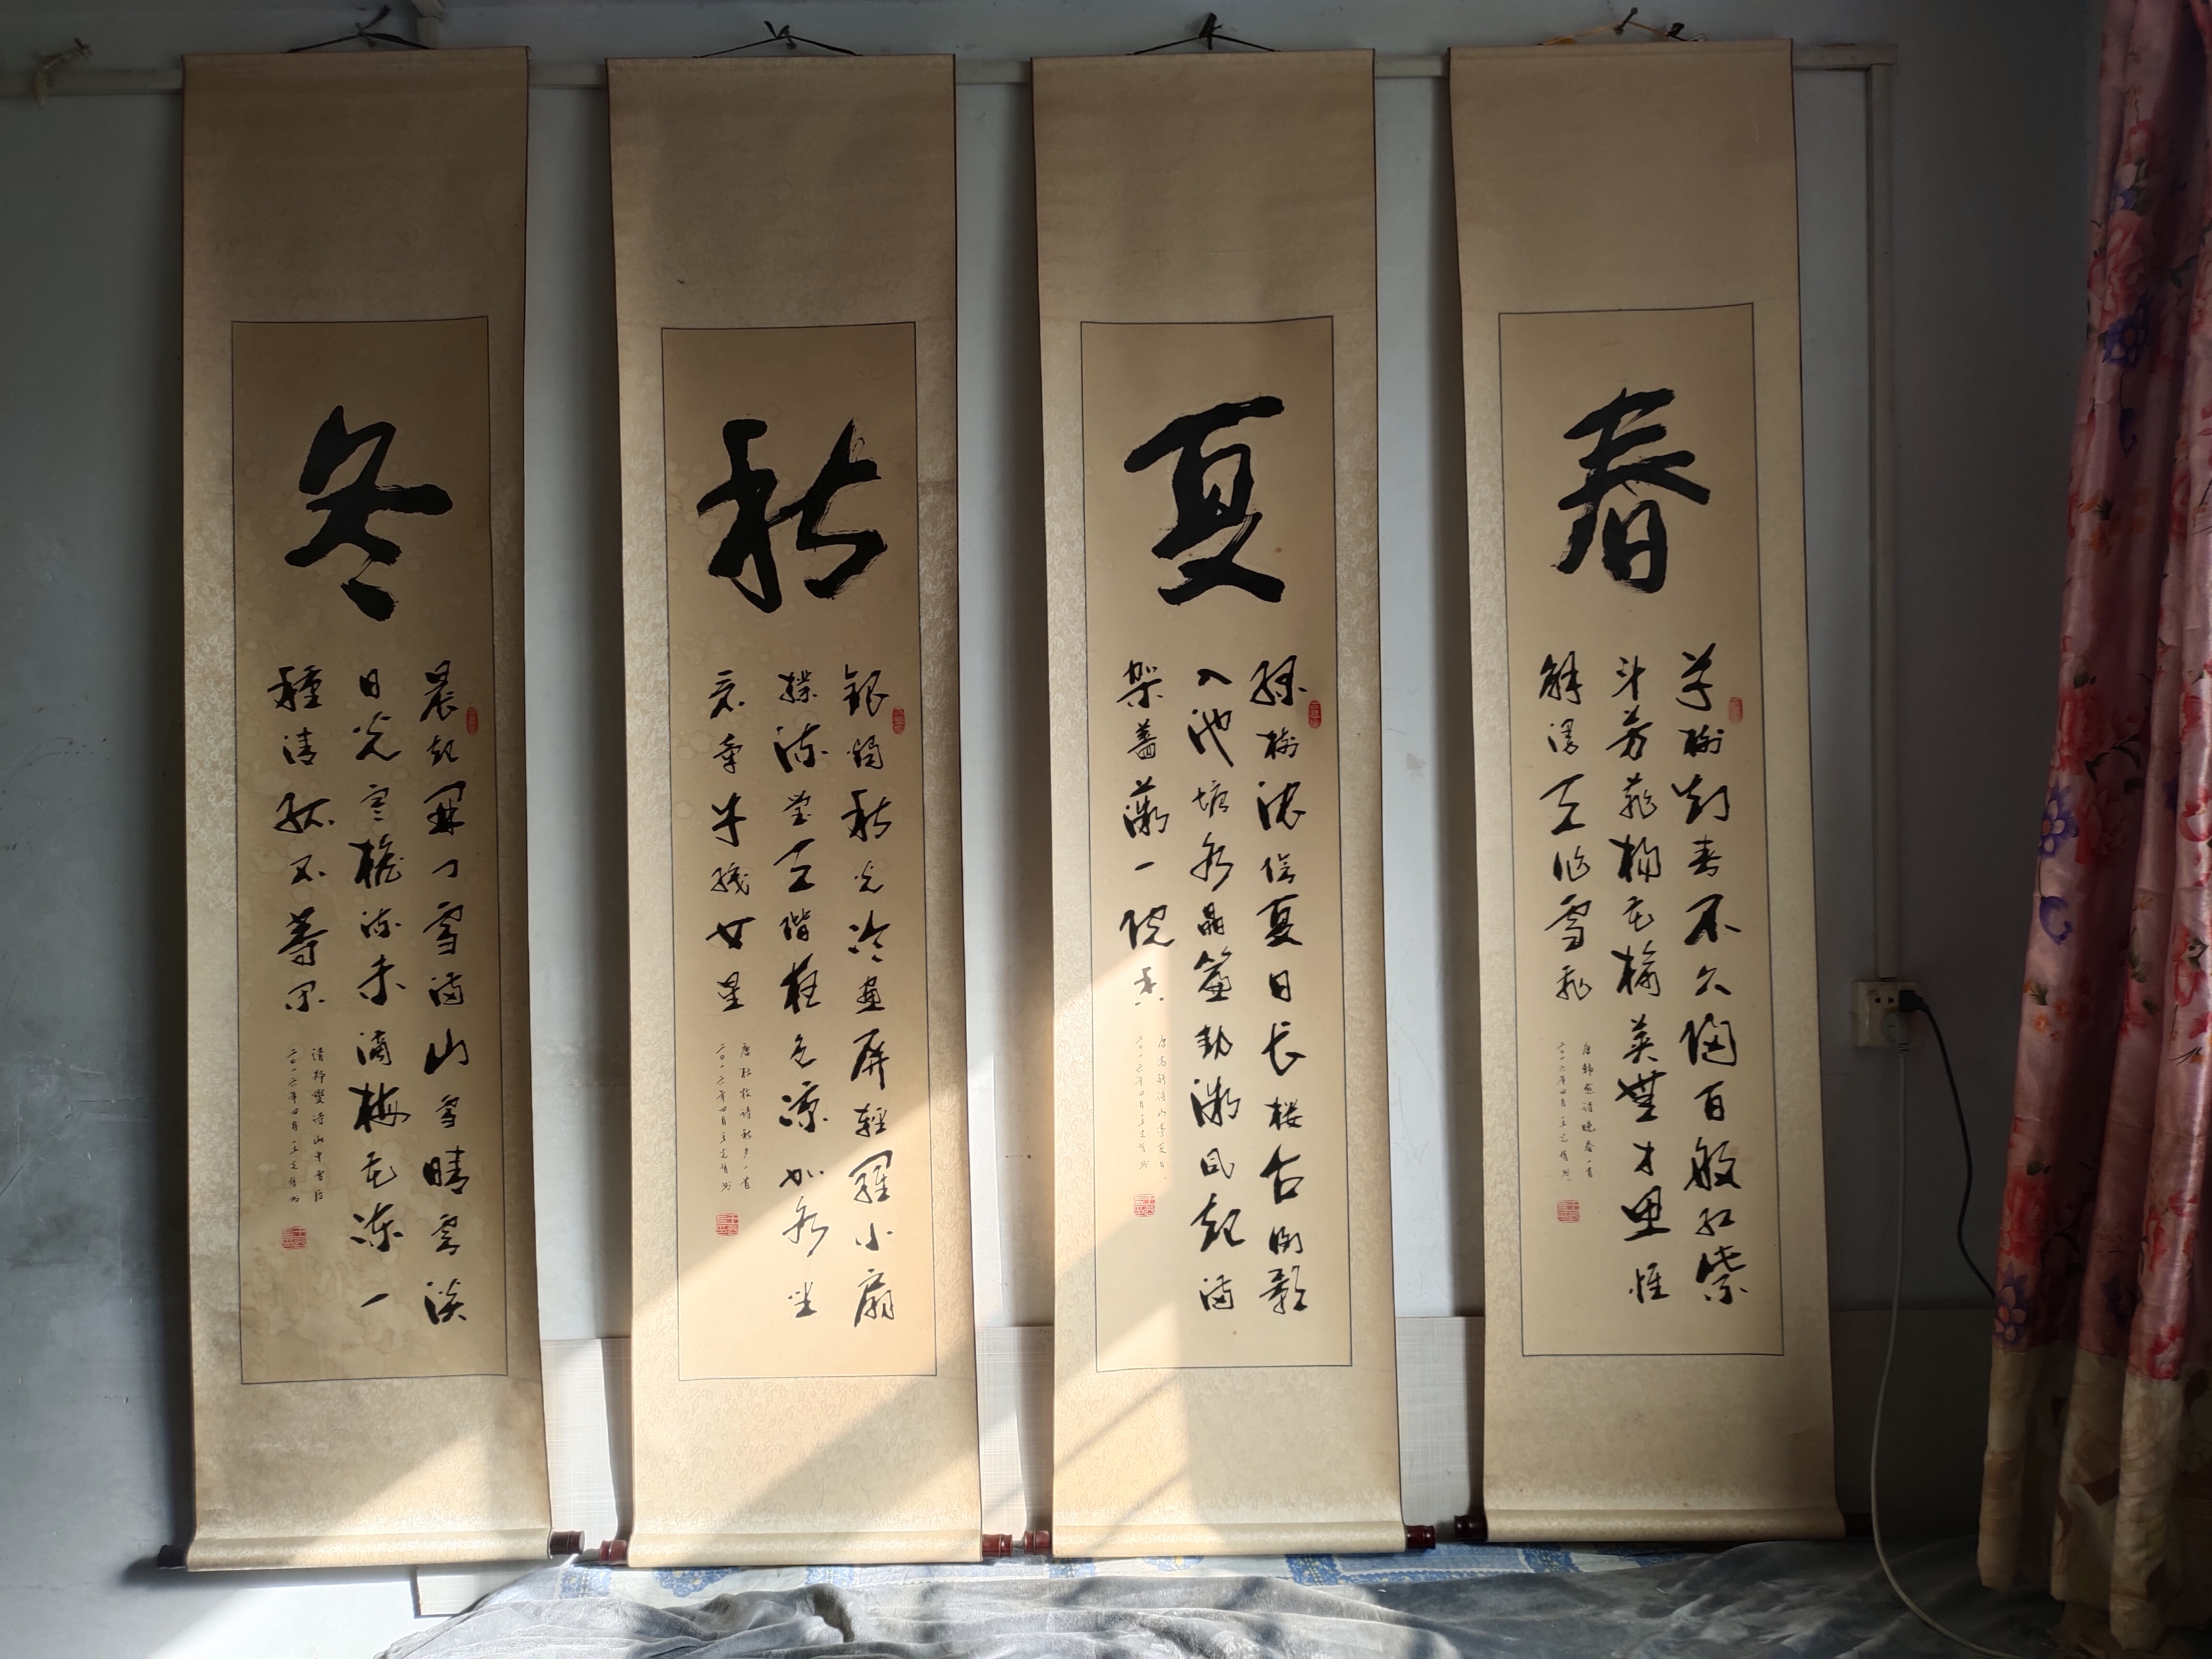 春
草樹知春不久归百般红紫
斗芳菲杨花榆荚無才思惟
解漫天作雪飛
唐韩愈诗晚春一首
二〇一六年四月王志
夏
绿樹浓阴夏日长楼台倒影
入池塘水晶簾動微风起满
架蔷薇一院香
唐高骈诗山亭夏日
二〇一六年四月王志
秋
銀烛秋光冷畫屏輕羅小扇
撲流萤天階夜色凉如水坐
看牵牛織女星
唐杜牧诗秋夕一首
二〇一六年四月王志
冬
晨起開门雪满山雪晴雲淡
日光寒檐流未滴梅花冻一
種清孤不等闲
清郑燮诗山中雪后
二〇一六年四月王志